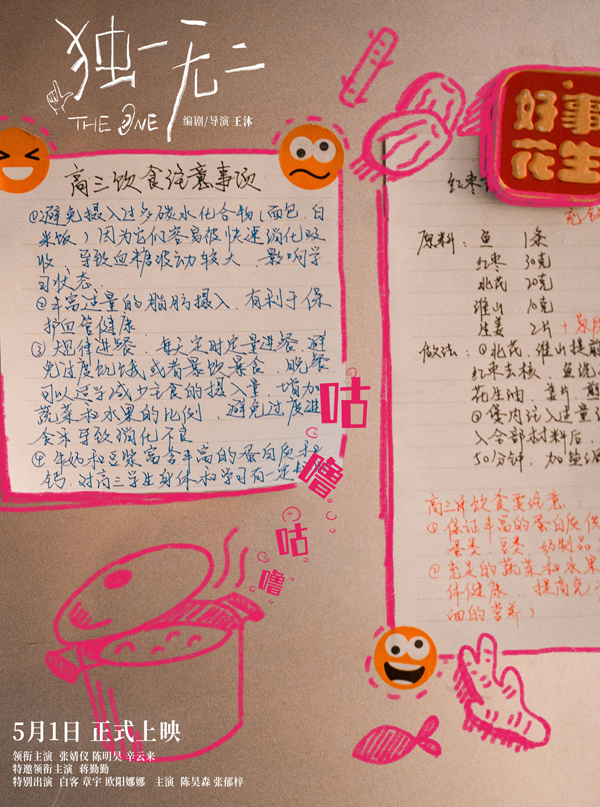 独一无二
THE ONE
编剧/导演 王沐
好事
花生
高三饮食注意事项
①避免摄入过多碳水化合物(面包,白
米饭)因为它们容易被快速消化吸
收,导致血糖波动较大,影响学
习状态.
②丰富适量的脂肪摄入,有利于保
护血管健康
③规律进餐,每天定时定量进餐,避
免过度饥饿或者暴饮暴食,晚餐
可以适当减少主食的摄入量,增加
蔬菜和水果的比例,避免过度进
食导致消化不良
④牛奶和豆浆富含丰富的蛋白质和
钙,对高三学生身体和学习有一定
咕
噜
咕
噜
红枣
原料:鱼 1条
红枣 30克
北芪 20克
淮山 10克
生姜 2片
做法:①北芪,淮山提前
红枣去核,鱼洗
花生油,姜片,煎
②煲内注入适量
入全部材料后,
50分钟,加盐
高三生饮食要注意:
①保证丰富的蛋白质供
蛋类,豆类,奶制品
②充足的蔬菜和水果
体健康,提高免
细的营养)
5月1日 正式上映
领衔主演 张婧仪 陈明昊 辛云来
特邀领衔主演 蒋勤勤
特别出演 白客 章宇 欧阳娜娜 主演 陈昊森 张郁梓